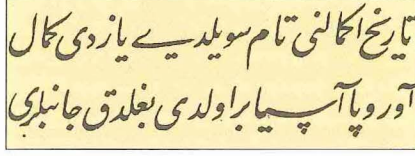 تاریخ اکمالنی تام سویلدی یازدی کمال
آوروپا آسیا بر اولدی بغلدق جانبلری